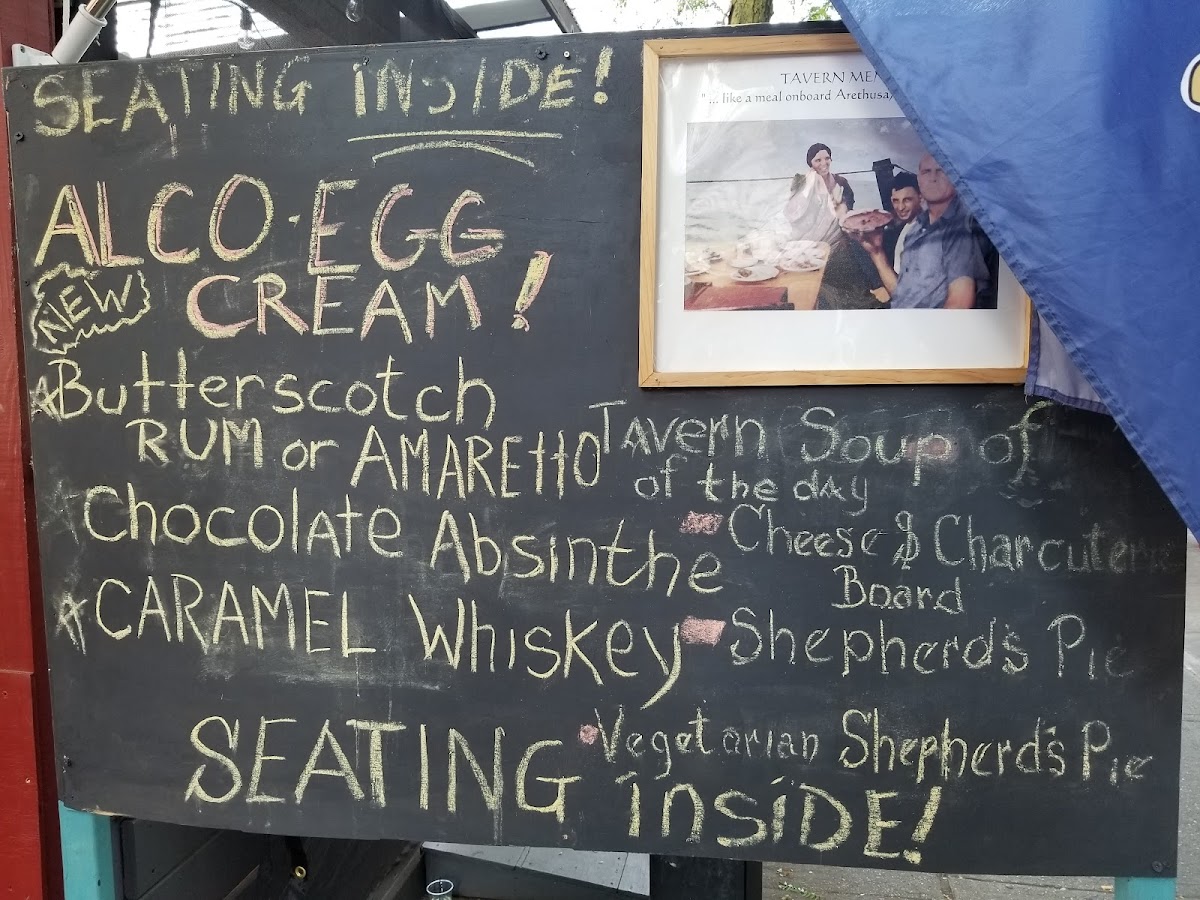 SEATING INSIDE!
ALCO-EGG
NEW
CREAM!
Butterscotch
RUM or AMARETTO
Chocolate Absinthe
CARAMEL Whiskey
TAVERN MEN
"... like a meal onboard Arethusa,
Tavern Soup of
of the day
Cheese & Charcuterie
Board
Shepherd's Pie
Vegetarian Shepherd's Pie
SEATING inSIDE!